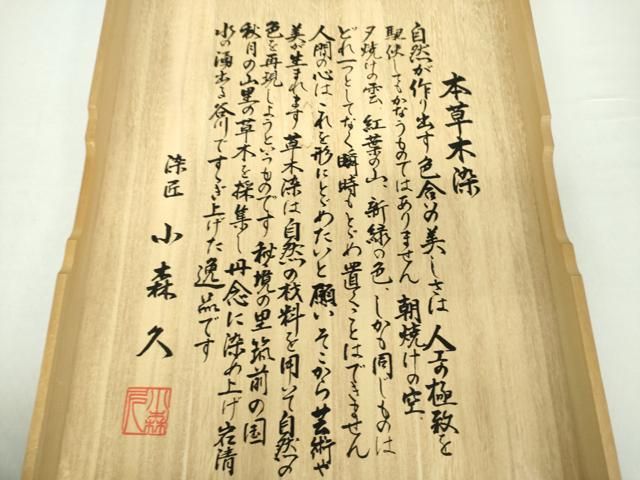 本草木染
自然が作り出す色合の美しさは 人工の極致を
駆使してもかなうものではありません 朝焼けの空、
夕焼けの雲、紅葉の山、新緑の色、しかも同じものは
どれ一つとしてなく瞬時もとゞめ置くことはできません
人間の心はこれを形にとゞめたいと願い そこから芸術や
美が生まれます 草木染は自然の材料を用いて自然の
色を再現しようというものです 秘境の里筑前の国
秋月の山里の草木を採集し丹念に染め上げ岩清
水の湧出る谷川ですゝぎ上げた逸品です
染匠 小森久
小森久